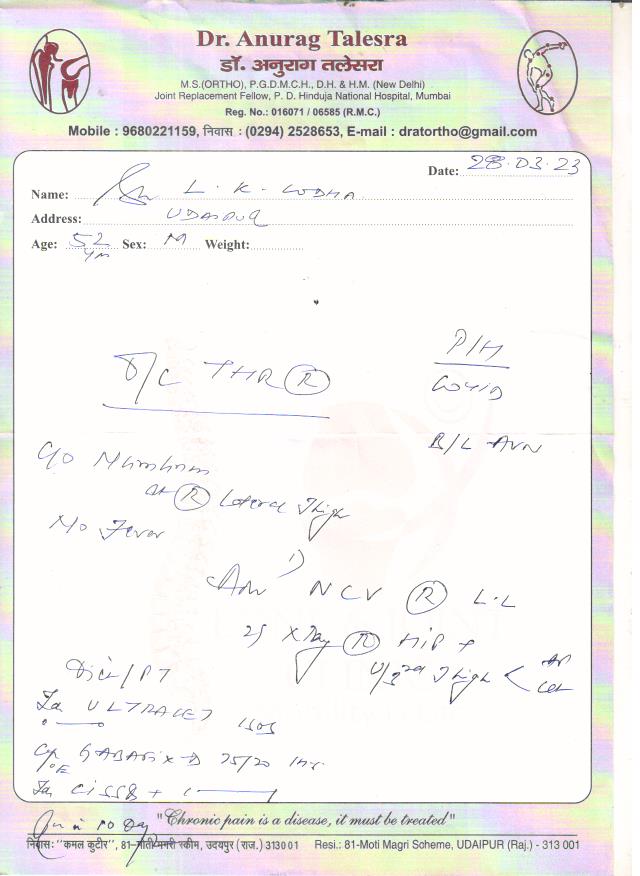 Dr. Anurag Talesra
डॉ. अनुराग तलेसरा
M.S.(ORTHO), P.G.D.M.C.H., D.H. & H.M. (New Delhi)
Joint Replacement Fellow, P. D. Hinduja National Hospital, Mumbai
Reg. No.: 016071 / 06585 (R.M.C.)
Mobile : 9680221159, निवास : (0294) 2528653, E-mail : dratortho@gmail.com
Date: 28.03.23
Name: L. K. LODHA
Address: UDAIPUR
Age: 52 Sex: M Weight:
P/H
THR R
COVID
B/L AVN
C/o
at R Lateral Thigh
No Fever
1)
Adv NCV R L.L
2) X Ray R HIP +
U/3rd Thigh < AP
Lat
ULTRACET SOS
75/20
+
in 10 Day
"Chronic pain is a disease, it must be treated"
निवास: "कमल कुटीर", 81-मोती मगरी स्कीम, उदयपुर (राज.) 313001 Resi.: 81-Moti Magri Soheme, UDAIPUR (Raj.) - 313 001